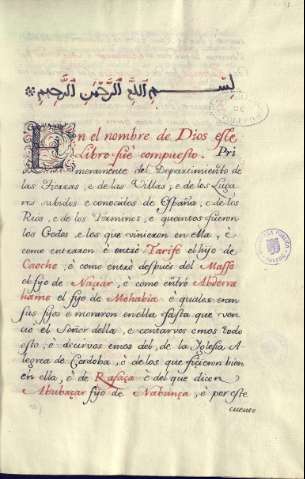 بسم الله الرحمن الرحيم
En el nombre de Dios este
Libro fue compuesto. Pri
meramente del Departimiento de
las Tierras, e de las Villas, e de los Luga
rres sabidos e conocidos de España, e de los
Rios, e de los Terminos, e quantos fueron
los Godos, e los que vinieron en ella, é
como entraron é entró Tarife el hijo de
é como entró despues del
el fijo de é como entró Abderra
hamo el fijo de é quales eran
sus fijos e moraron en ella fasta que ven
ció el Señor della, e contarvos emos todo
esto, é decirvos emos del, de la Iglesia A
de Cordoba, é de los que ficieron bien
en ella, é de Rasaça é del que dicen
Abubaçar fijo de é por este
cuento